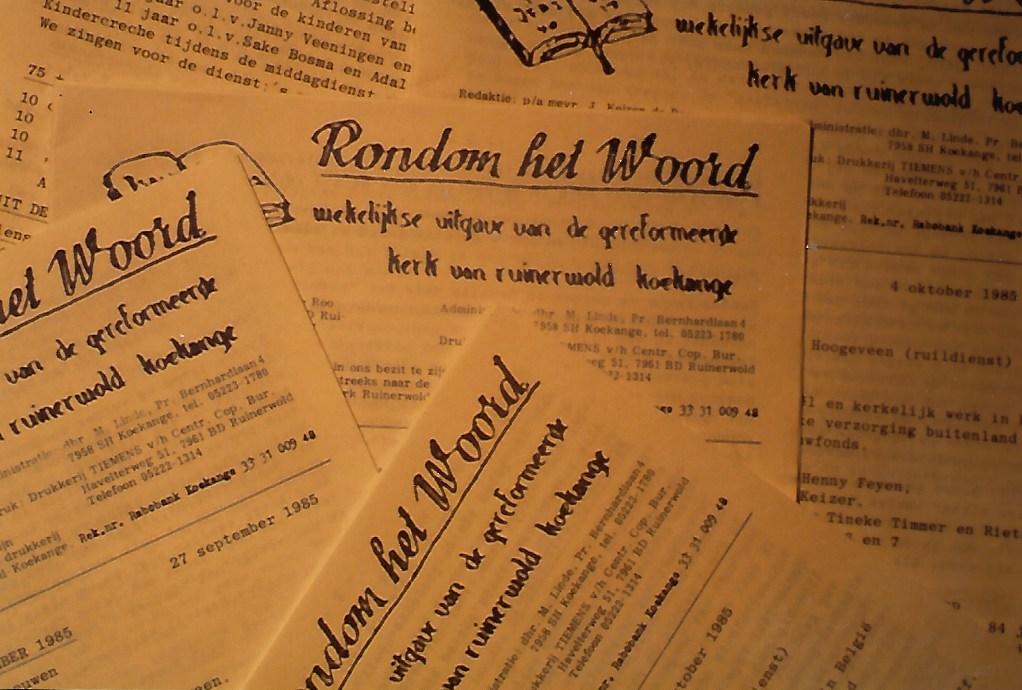 Aflossing
voor de kinderen van
jaar o.l.v. Janny Veeningen en
11 jaar o.l.v. Sake Bosma en Adal
Kindercreche tijdens de middagdienst
We zingen voor de dienst:
75
10
10
10
11
A
UIT DE
wekelijkse uitgave van de
kerk van ruinerwold
Redaktie: p/a mevr. J. Keizer
dhr. M. Linde, Pr.
7958 SH Koekange, tel.
Drukkerij TIEMENS v/h Centr.
Havelterweg 51, 7961
Telefoon 05222-1314
Rek.nr. Rabobank Koekange
4 oktober 1985
Hoogeveen (ruildienst)
en kerkelijk werk in
verzorging buitenland
wfonds.
Henny Feyen,
Keizer.
Tineke Timmer en
en 7
84
Rondom het Woord
wekelijkse uitgave van de gereformeerde
kerk van ruinerwold koekange
Roo
D Rui-
M. Linde, Pr. Bernhardlaan 4
7958 SH Koekange, tel. 05223-1780
TIEMENS v/h Centr. Cop. Bur.
51, 7961 BD Ruinerwold
-1314
in ons bezit te zij
streeks naar de
rk Ruinerwold
33 31 009 48
het Woord
van de gereformeerde
ruinerwold koekange
dhr. M. Linde, Pr. Bernhardlaan 4
7958 SH Koekange, tel. 05223-1780
Drukkerij TIEMENS v/h Centr. Cop. Bur.
Havelterweg 51, 7961 BD Ruinerwold
Telefoon 05222-1314
drukkerij
Rek.nr. Rabobank Koekange 33 31 009 48
27 september 1985
BER 1985
Rondom het Woord
uitgave van de gereformeerde
van ruinerwold koekange
dhr. M. Linde, Pr. Bernhardlaan 4
7958 SH Koekange, tel. 05223-1780
Drukkerij TIEMENS v/h Centr. Cop. Bur.
Havelterweg 51, 7961 BD Ruinerwold
Telefoon 05222-1314
Rek.nr. Rabobank Koekange 33 31 009 48
tober 1985
enst)
n België